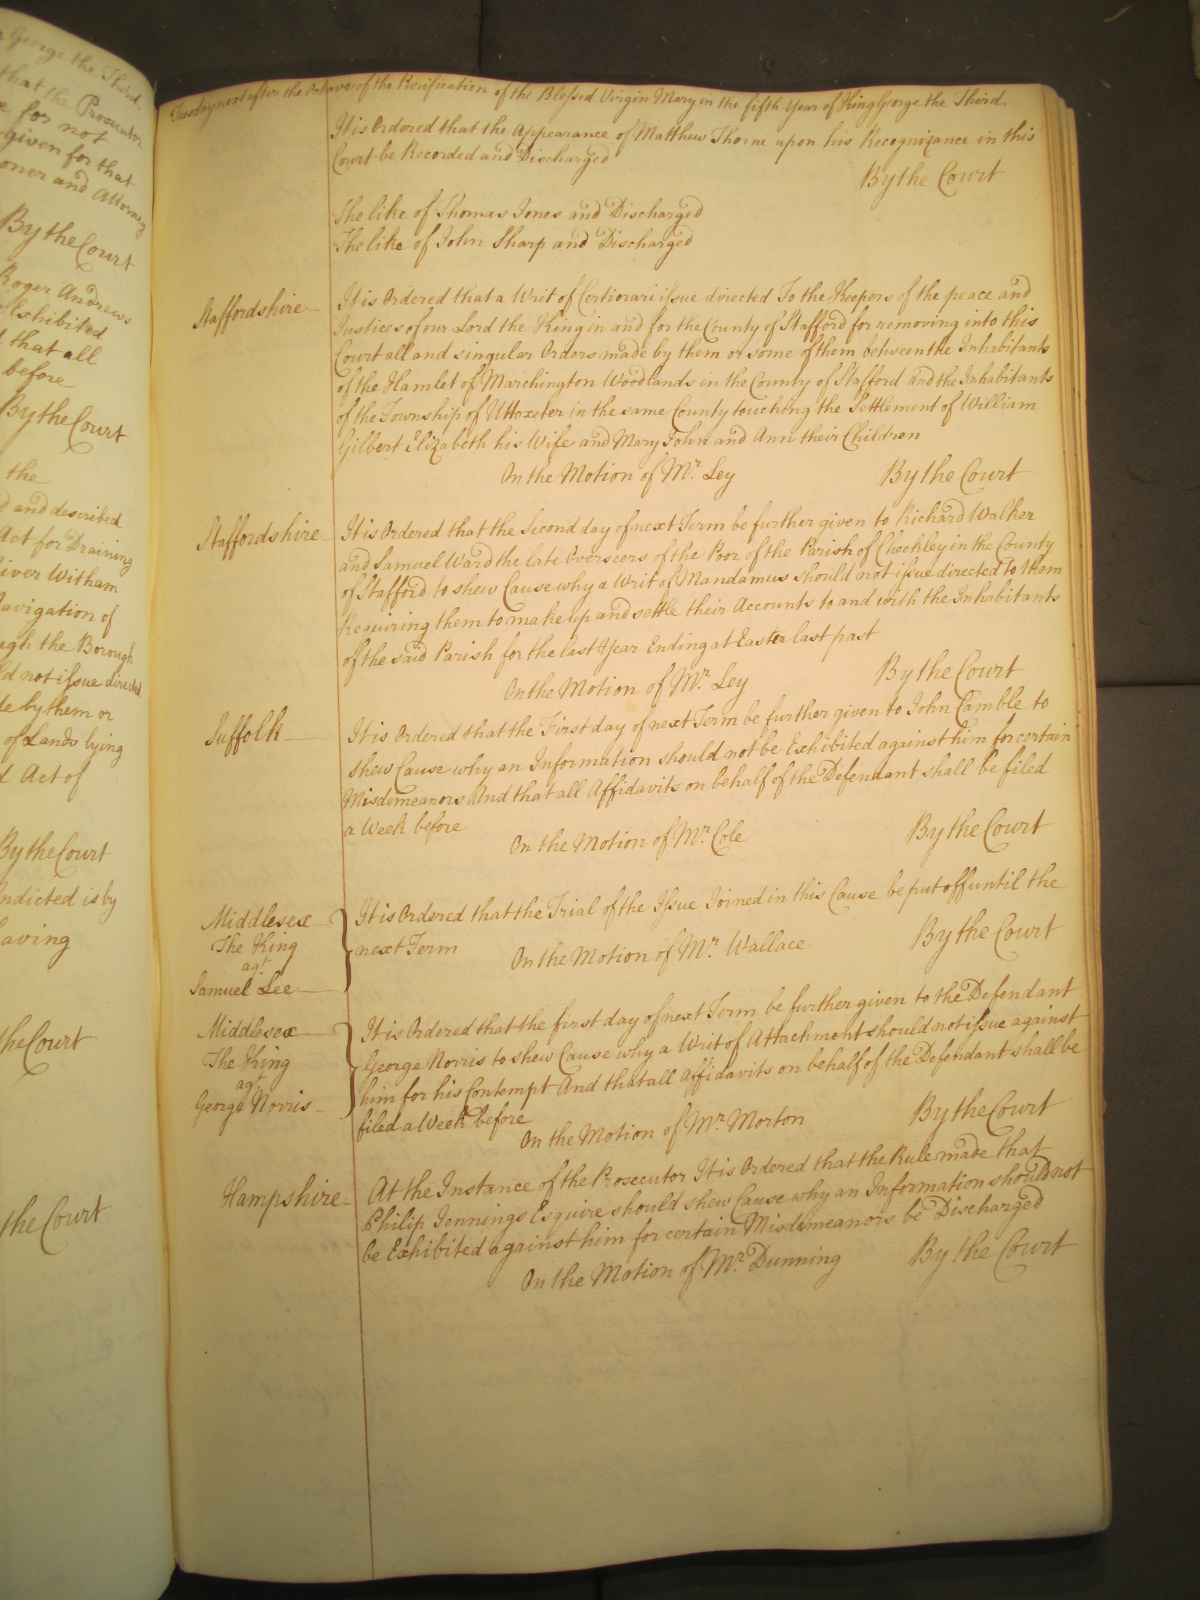 George the Third.
that the Prosecutor
e for not
given for that
oner and Attorney
By the Court
Roger Andrews
Exhibited
that all
before
By the Court
the
d and described
Act for Draining
River Witham
Navigation of
ugh the Borough
ld not issue directed
de by them or
of Lands lying
d Act of
By the Court
Indicted is by
aving
the Court
the Court
Tuesday next after the Octave of the Purification of the Blessed Virgin Mary in the fifth Year of King George the Third.
It is Ordered that the Appearance of Matthew Thorne upon his Recognizance in this
Court be Recorded and Discharged
By the Court
The like of Thomas Jones and Discharged
The like of John Sharp and Discharged
Staffordshire
It is Ordered that a Writ of Certiorari issue directed To the Keepers of the peace and
Justices of our Lord the King in and for the County of Stafford for removing into this
Court all and singular Orders made by them or some of them between the Inhabitants
of the Hamlet of Marchington Woodlands in the County of Stafford and the Inhabitants
of the Township of Uttoxeter in the same County touching the Settlement of William
Gilbert Elizabeth his Wife and Mary John and Ann their Children
On the Motion of Mr. Ley By the Court
Staffordshire
It is Ordered that the Second day of next Term be further given to Richard Walker
and Samuel Ward the late Overseers of the Poor of the Parish of Checkley in the County
of Stafford to shew Cause why a Writ of Mandamus should not issue directed to them
Requiring them to make up and settle their Accounts to and with the Inhabitants
of the said Parish for the last Year Ending at Easter last past
On the Motion of Mr. Ley By the Court
Suffolk
It is Ordered that the First day of next Term be further given to John Camble to
shew Cause why an Information should not be Exhibited against him for certain
Misdemeanors And that all Affidavits on behalf of the Defendant shall be filed
a Week before
On the Motion of Mr. Cole By the Court
Middlesex
The King
agt.
Samuel Lee
It is Ordered that the Trial of the Issue Joined in this Cause be put off until the
next Term
On the Motion of Mr. Wallace By the Court
Middlesex
The King
agt.
George Norris
It is Ordered that the first day of next Term be further given to the Defendant
George Norris to shew Cause why a Writ of Attachment should not issue against
him for his Contempt And that all Affidavits on behalf of the Defendant shall be
filed a Week before
On the Motion of Mr. Morton By the Court
Hampshire
At the Instance of the Prosecutor It is Ordered that the Rule made that
Philip Jennings Esquire should shew Cause why an Information should not
be Exhibited against him for certain Misdemeanors be Discharged
On the Motion of Mr. Dunning By the Court